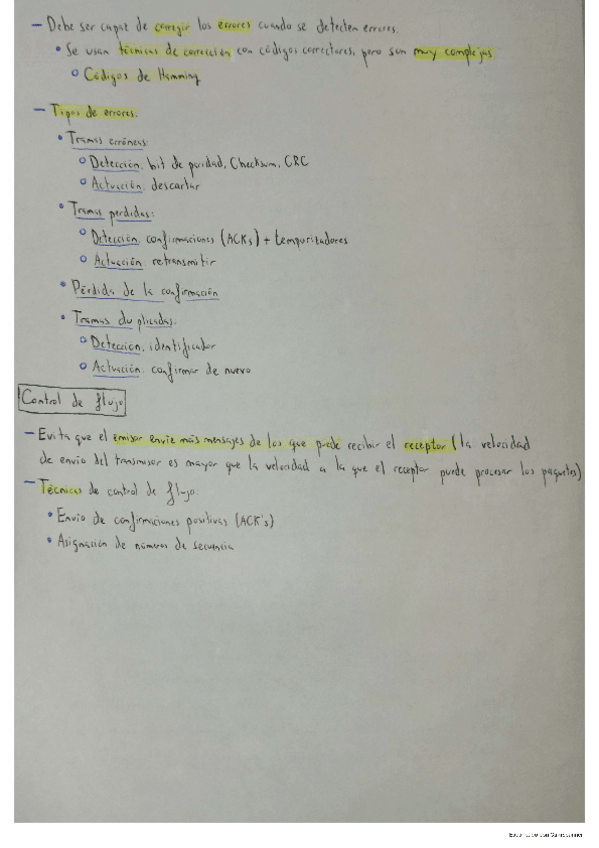 – Debe ser capaz de corregir los errores cuando se detecten errores.
• Se usan técnicas de corrección con códigos correctores, pero son muy complejas
o Códigos de Hamming
– Tipos de errores:
• Tramas erróneas:
o Detección: bit de paridad, Checksum, CRC
o Actuación: descartar
• Tramas perdidas:
o Detección: confirmaciones (ACKs) + temporizadores
o Actuación: retransmitir
• Pérdida de la confirmación
• Tramas duplicadas:
o Detección: identificador
o Actuación: confirmar de nuevo
Control de flujo
– Evita que el emisor envíe más mensajes de los que puede recibir el receptor (la velocidad
de envío del transmisor es mayor que la velocidad a la que el receptor puede procesar los paquetes)
– Técnicas de control de flujo:
• Envío de confirmaciones positivas (ACK's)
• Asignación de números de secuencia